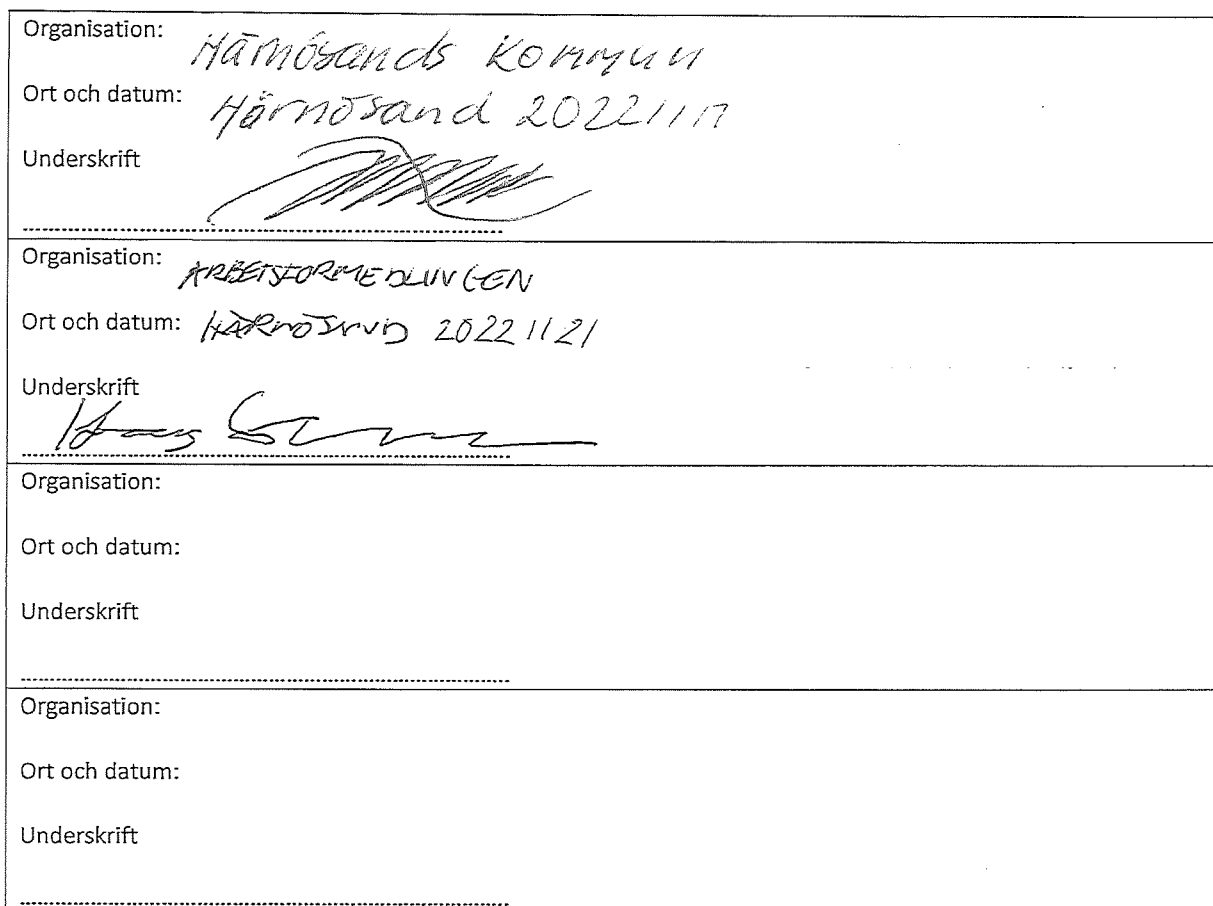 Organisation: Härnösands Kommun
Ort och datum: Härnösand 20221117
Underskrift
Organisation: ARBETSFÖRMEDLINGEN
Ort och datum: HÄRNÖSAND 20221121
Underskrift
Organisation:
Ort och datum:
Underskrift
Organisation:
Ort och datum:
Underskrift